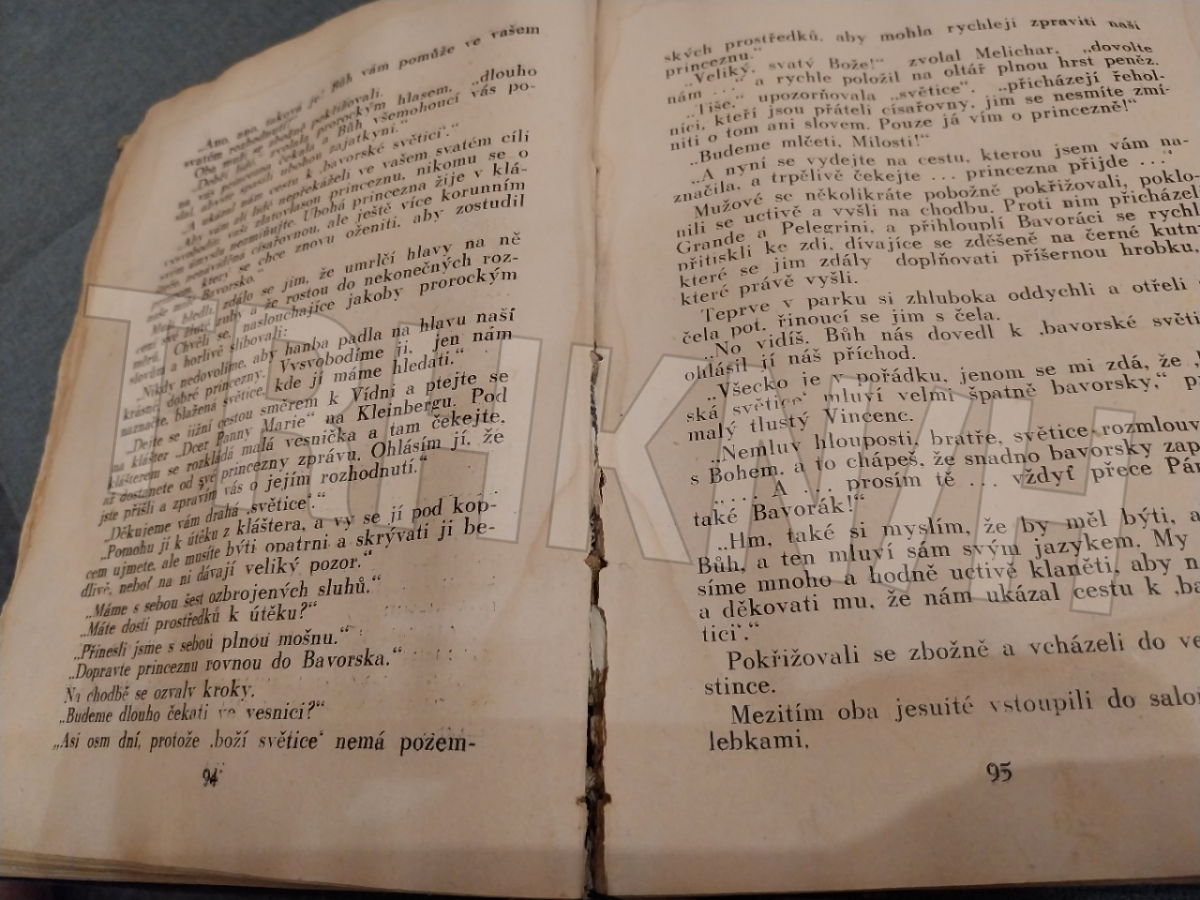 „Ano, ano, taková je! Bůh vám pomůže ve vašem
svatém rozhodnutí!“
Oba muži se zbožně pokřižovali.
„Dobří lidé,“ zvolala prorockým hlasem, „dlouho
na vás posvátně čekala a Bůh všemohoucí vás po-
slal, abyste spasili ubohou zajatkyni.“
„A ukázal nám cestu k ‚bavorské světici‘.“
„Aby vám zlí lidé nepřekáželi ve vašem svatém cíli
vysvoboditi vaši zlatovlasou princeznu, nikomu se o
svém úmyslu nezmiňujte. Ubohá princezna žije v klá-
šteře, nenáviděná císařovnou, ale ještě více korunním
princem, který se chce znovu oženiti, aby zostudil
naše milé Bavorsko.“
Muži hleděli, zdálo se jim, že umrlčí hlavy na ně
cení své žluté zuby a že rostou do nekonečných roz-
měrů. Chvěli se, naslouchajíce jakoby prorockým
slovům a horlivě slibovali:
„Nikdy nedovolíme, aby hanba padla na hlavu naší
krásné, dobré princezny. Vysvobodíme ji, jen nám
naznačte, blažená světice, kde jí máme hledati.“
„Dejte se jižní cestou směrem k Vídni a ptejte se
na klášter „Dcer Panny Marie“ na Kleinbergu. Pod
klášterem se rozkládá malá vesnička a tam čekejte,
až dostanete od své princezny zprávu. Ohlásím jí, že
jste přišli a zpravím vás o jejím rozhodnutí.“
„Děkujeme vám drahá ‚světice‘.“
„Pomohu jí k útěku z kláštera, a vy se jí pod kop-
cem ujmete, ale musíte býti opatrni a skrývati ji be-
dlivě, neboť na ni dávají veliký pozor.“
„Máme s sebou šest ozbrojených sluhů.“
„Máte dosti prostředků k útěku?“
„Přinesli jsme s sebou plnou mošnu.“
„Dopravte princeznu rovnou do Bavorska.“
Na chodbě se ozvaly kroky.
„Budeme dlouho čekati ve vesnici?“
„Asi osm dní, protože ‚boží světice‘ nemá pozem-
94
ských prostředků, aby mohla rychleji zpraviti naši
princeznu.“
„Veliký, svatý Bože!“ zvolal Melichar, „dovolte
nám ...“ a rychle položil na oltář plnou hrst peněz.
„Tiše,“ upozorňovala „světice“, „přicházejí řehol-
níci, kteří jsou přáteli císařovny, jim se nesmíte zmí-
niti o tom ani slovem. Pouze já vím o princezně!“
„Budeme mlčeti, Milosti!“
„A nyní se vydejte na cestu, kterou jsem vám na-
značila, a trpělivě čekejte ... princezna přijde ...“
Mužové se několikráte pobožně pokřižovali, poklo-
nili se uctivě a vyšli na chodbu. Proti nim přicházel
Grande a Pelegrini, a přihlouplí Bavoráci se rychl
přitiskli ke zdi, dívajíce se zděšeně na černé kutn
které se jim zdály doplňovati příšernou hrobku,
které právě vyšli.
Teprve v parku si zhluboka oddychli a otřeli s
čela pot, řinoucí se jim s čela.
„No vidíš, Bůh nás dovedl k ‚bavorské světi
ohlásil jí náš příchod.
„Všecko je v pořádku, jenom se mi zdá, že ‚
ská světice‘ mluví velmi špatně bavorsky,“ p
malý tlustý Vincenc.
„Nemluv hlouposti, bratře, světice rozmlouv
s Bohem, a to chápeš, že snadno bavorsky zap
„.... A ... prosím tě ... vždyť přece Pá
také Bavorák!“
„Hm, také si myslím, že by měl býti, a
Bůh, a ten mluví sám svým jazykem. My
síme mnoho a hodně uctivě klaněti, aby n
a děkovati mu, že nám ukázal cestu k ‚ba
tici‘.“
Pokřižovali se zbožně a vcházeli do ve
stince.
Mezitím oba jesuité vstoupili do salon
lebkami,
95
TRHKNIH